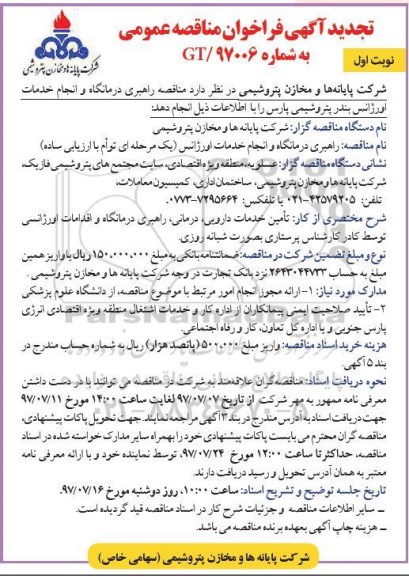 تجدید آگهی فراخوان مناقصه عمومی
به شماره GT/ ۹۷۰۰۶
نوبت اول
شرکت پایانه ها و مخازن پتروشیمی
شرکت پایانه‌ها و مخازن پتروشیمی در نظر دارد مناقصه راهبری درمانگاه و انجام خدمات
اورژانس بندر پتروشیمی پارس را با اطلاعات ذیل انجام دهد:
نام دستگاه مناقصه گزار: شرکت پایانه ها و مخازن پتروشیمی
نام مناقصه: راهبری درمانگاه و انجام خدمات اورژانس (یک مرحله ای توأم با ارزیابی ساده)
نشانی دستگاه مناقصه گزار: عسلویه، منطقه ویژه اقتصادی، سایت مجتمع های پتروشیمی فازیک،
شرکت پایانه ها و مخازن پتروشیمی، ساختمان اداری، کمیسیون معاملات،
تلفن ۴۲۵۷۹۲۰۵-۰۲۱ یا تلفکس: ۷۲۹۵۶۶۴-۰۷۷۳
شرح مختصری از کار: تأمین خدمات دارویی، درمانی، راهبری درمانگاه و اقدامات اورژانسی
توسط کادر کارشناس پرستاری بصورت شبانه روزی.
نوع و مبلغ تضمین شرکت در مناقصه: ضمانتنامه بانکی به مبلغ ۱۵۰,۰۰۰,۰۰۰ ریال یا واریز همین
مبلغ به حساب ۲۶۴۳۰۴۴۷۳۳ نزد بانک تجارت در وجه شرکت پایانه ها و مخازن پتروشیمی.
مدارک مورد نیاز: ۱- ارائه مجوز انجام امور مرتبط با موضوع مناقصه، از دانشگاه علوم پزشکی
۲- تأیید صلاحیت ایمنی پیمانکاران از اداره کار و خدمات اشتغال منطقه ویژه اقتصادی انرژی
پارس جنوبی و یا اداره کل تعاون، کار و رفاه اجتماعی.
هزینه خرید اسناد مناقصه: واریز مبلغ ۵۰۰,۰۰۰ (پانصد هزار) ریال به شماره حساب مندرج در
بند ۵ آگهی.
نحوه دریافت اسناد: مناقصه گران علاقه مند به شرکت در مناقصه می توانند با در دست داشتن
معرفی نامه ممهور به مهر شرکت از تاریخ ۹۷/۰۷/۰۷ لغایت ساعت ۱۴:۰۰ مورخ ۹۷/۰۷/۱۱
جهت دریافت اسناد به آدرس مندرج در بند ۳ آگهی مراجعه نمایند. جهت تحویل پاکات پیشنهادی،
مناقصه گران محترم می بایست پاکات پیشنهادی خود را بهمراه سایر مدارک خواسته شده در اسناد
مناقصه، حداکثر تا ساعت ۱۲:۰۰ مورخ ۹۷/۰۷/۲۴، توسط نماینده خود و با ارائه معرفی نامه
معتبر به همان آدرس تحویل و رسید دریافت دارند.
تاریخ جلسه توضیح و تشریح اسناد: ساعت ۱۰:۰۰، روز دوشنبه مورخ ۹۷/۰۷/۱۶.
– سایر اطلاعات مناقصه و جزئیات شرح کار در اسناد مناقصه قید گردیده است.
– هزینه چاپ آگهی بعهده برنده مناقصه می باشد.
شرکت پایانه ها و مخازن پتروشیمی (سهامی خاص)